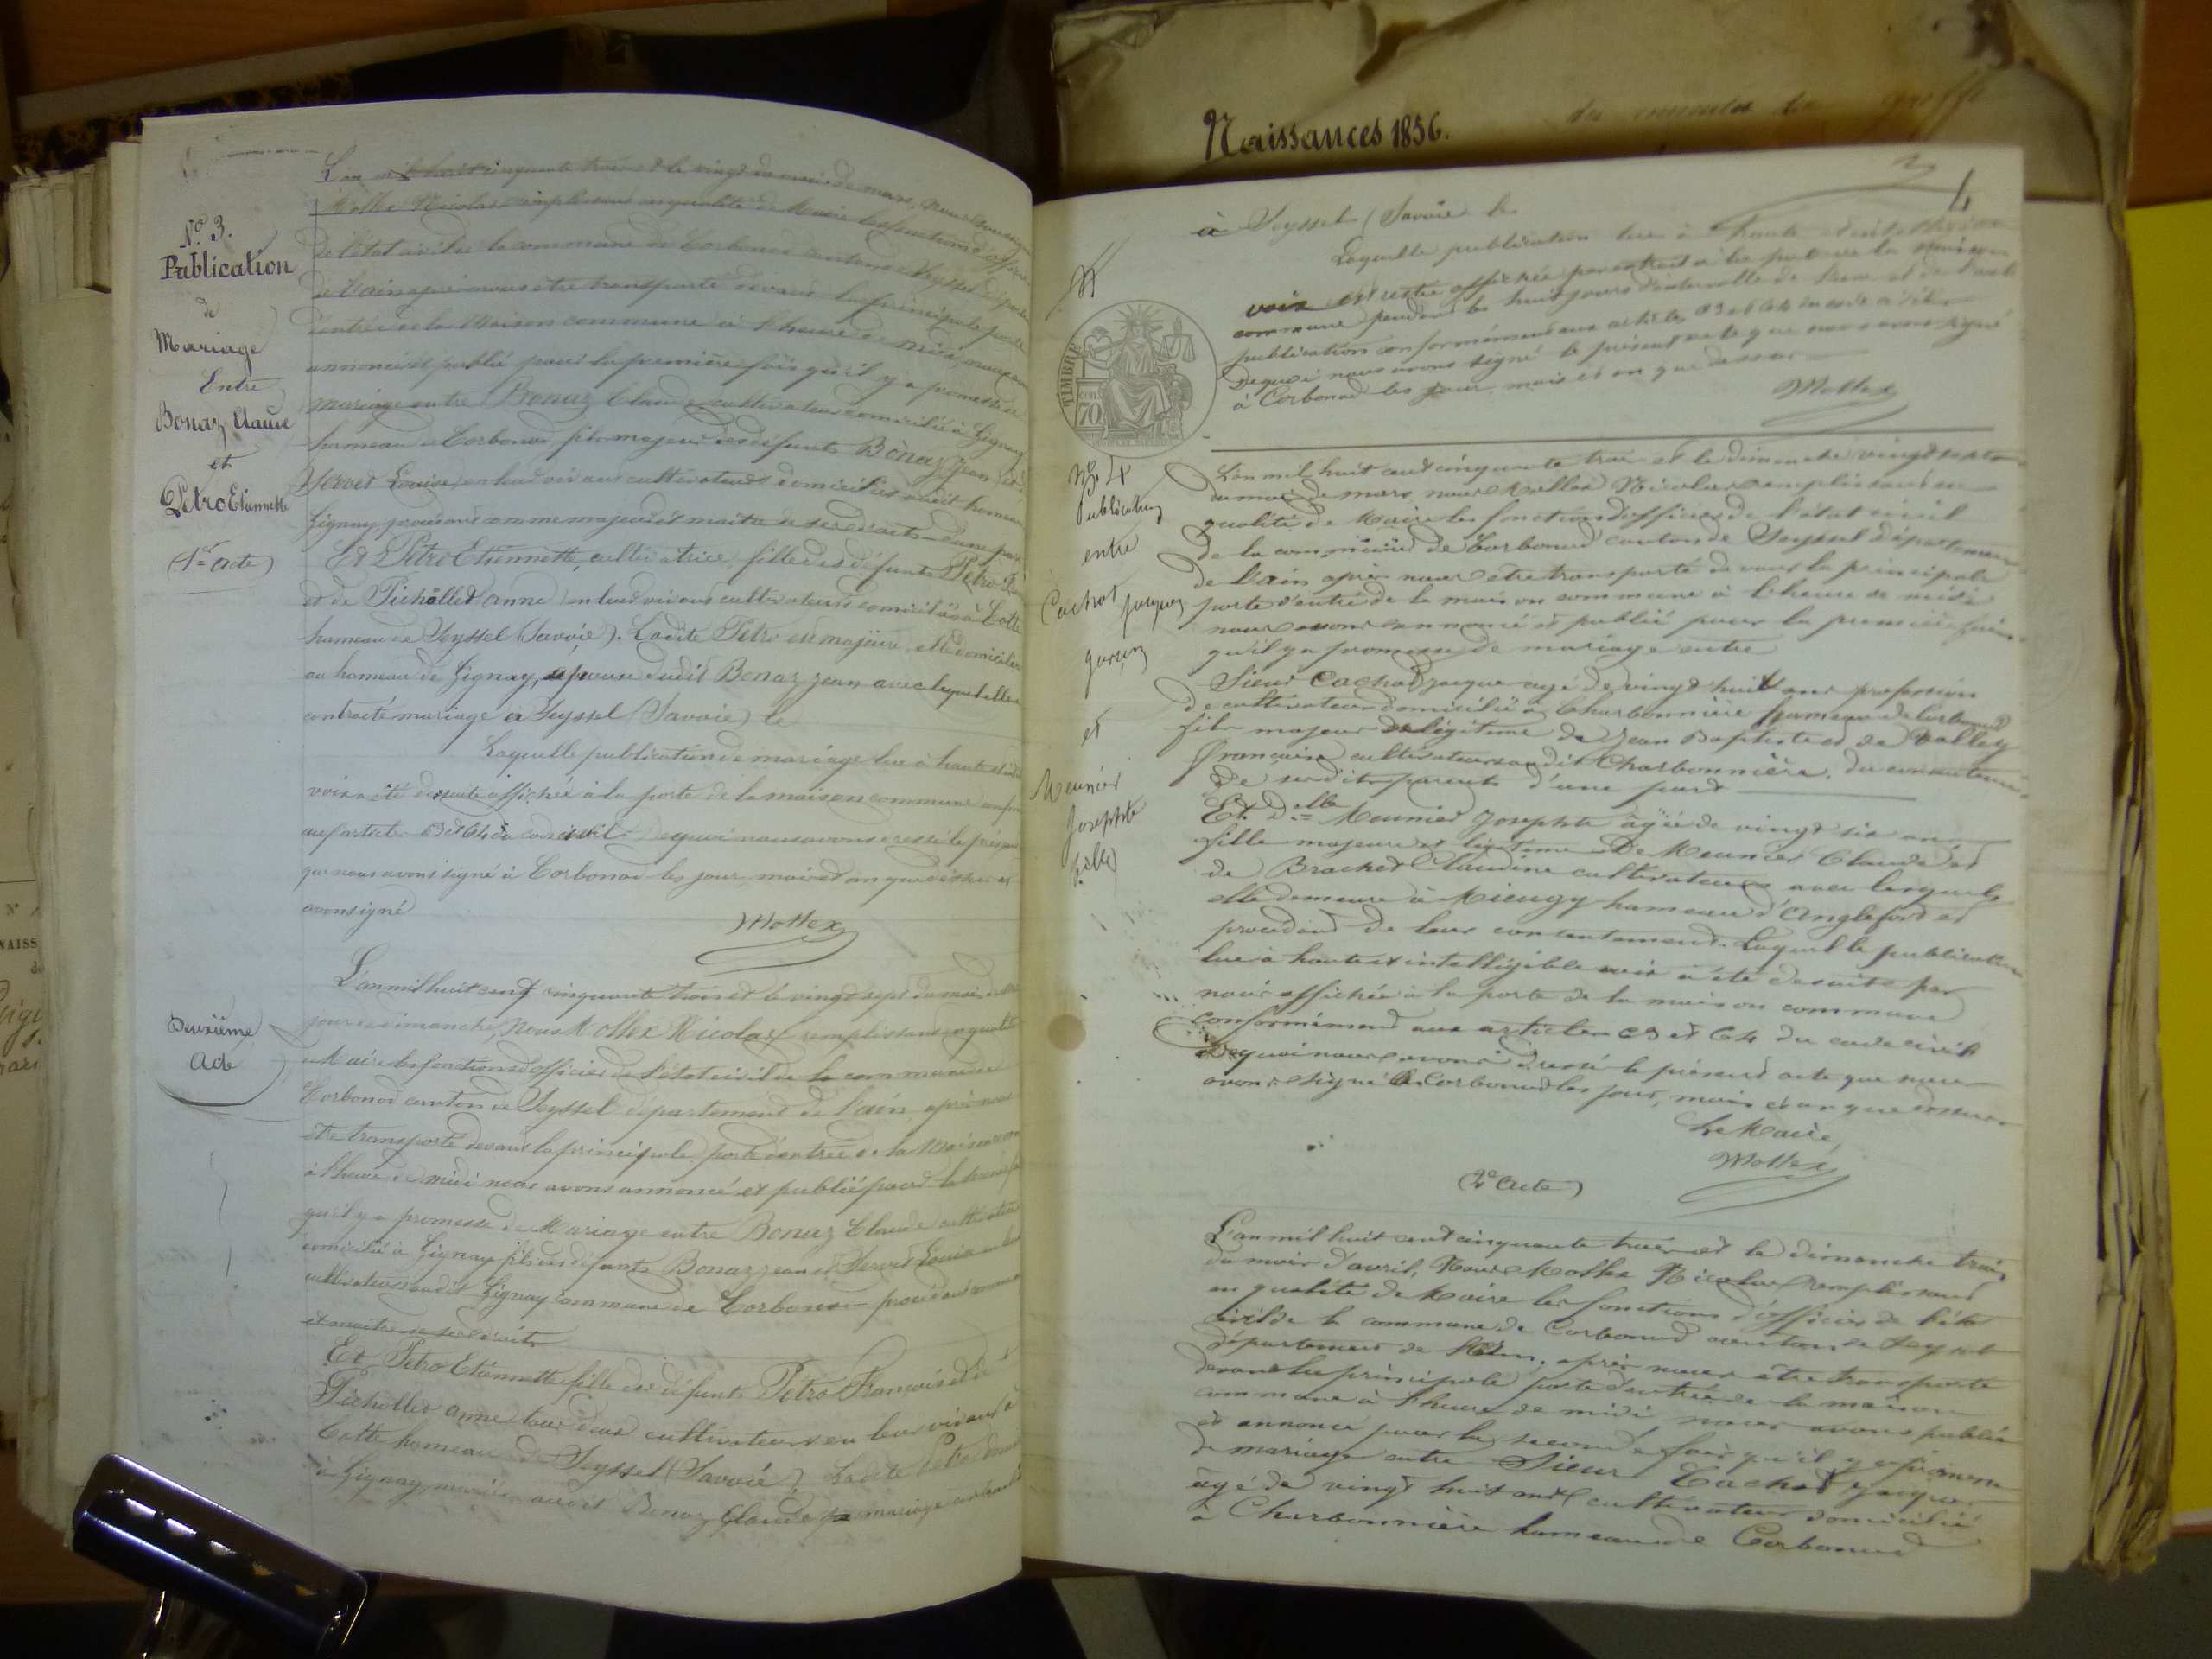 No. 3.
Publication
de
Mariage
Entre
Bonaz Claude
et
Pétro Etiennette
(1er acte)
L'an mil huit cinquante trois et le vingt du mois de mars, nous soussigné
Mollex Nicolas remplissant en qualité de Maire les fonctions d'officier
de l'état civil de la commune de Corbonod canton de Seyssel départ
de l'ain après nous être transporté devant la principale porte
d'entrée de la Maison commune à l'heure de midi, nous avons
annoncé et publié pour la première fois qu'il y a promesse de
mariage entre Bonaz Claude cultivateur domicilié à Gignay
hameau de Corbonod fils majeur des défunts Bonaz Jean et de
Servet Louise en leur vivant cultivateurs domiciliés audit hameau
Gignay procédant comme majeur et maître de ses droits d'une part
Et Pétro Etiennette, cultivatrice, fille des défunts Pétro
et de Pichollet anne en leur vivant cultivateurs domiciliés à Cotte
hameau de Seyssel (Savoie). Ladite Pétro est majeure, elle domiciliée
au hameau de Gignay, épouse dudit Bonaz Jean avec lequel elle a
contracté mariage à Seyssel (Savoie) le
Laquelle publication de mariage lue à haute et
voix a été de suite affichée à la porte de la maison commune
aux articles 63 et 64 du code civil. De quoi nous avons dressé le présent
que nous avons signé à Corbonod les jour, mois et an que dessus et
avons signé
Mollex
Deuxième
Acte
L'an mil huit cent cinquante trois et le vingt sept du mois de
jour de dimanche, Nous Mollex Nicolas remplissant en qualité
de Maire les fonctions d'officier de l'état civil de la commune de
Corbonod canton de Seyssel département de l'ain, après nous
être transporté devant la principale porte d'entrée de la Maison
à l'heure de midi nous avons annoncé et publié pour la
qu'il y a promesse de Mariage entre Bonaz Claude cultivateur
domicilié à Gignay fils des défunts Bonaz jean et Servet Louise en leur
cultivateurs audit Gignay commune de Corbonod procédant comme
et maitre de ses droits
Et Pétro Etiennette fille des défunts Pétro François et de
Pichollet anne tous deux cultivateurs en leur vivant à
Cotte hameau de Seyssel (Savoie). Ladite Pétro
à Gignay, mariée audit Bonaz Claude par mariage contracté
Naissances 1856.
4
à Seyssel (Savoie) le
Laquelle publication lue à haute et intelligible
voix est restée affichée par extrait à la porte de la maison
commune pendant les huit jours d'intervalle de l'une et de l'autre
publication conformément aux articles 63 et 64 du code civil
De quoi nous avons signé le présent acte que nous avons signé
à Corbonod les jour, mois et an que dessus
Mollex
TIMBRE
70
No. 4
Publication
entre
Cachat jacques
garçon
et
Meunier
Josephte
fille
L'an mil huit cent cinquante trois et le dimanche vingt sept
du mois de mars nous Mollex Nicolas remplissant en
qualité de Maire les fonctions d'officier de l'état civil
de la commune de Corbonod canton de Seyssel département
de l'ain après nous être transporté devant la principale
porte d'entrée de la maison commune à l'heure de midi
nous avons annoncé et publié pour la première fois
qu'il y a promesse de mariage entre
Sieur Cachat jacque agé de vingt huit ans profession
de cultivateur domicilié à Charbonnière hameau de Corbonod
fils majeur et légitime de Jean Baptiste et de Vallet
Françoise cultivateurs audit Charbonnière, du consentement
de ses dits parents d'une part
Et Delle Meunier Josephte âgée de vingt six ans
fille majeure et légitime de Meunier Claude et
de Brachet Claudine cultivateurs avec lesquels
elle demeure à Mieugy hameau d'Anglefort et
procédant de leur consentement. Laquelle publication
lue à haute et intelligible voix a été de suite par
nous affichée à la porte de la maison commune
conformément aux articles 63 et 64 du code civil
De quoi nous avons dressé le présent acte que nous
avons signé à Corbonod les jour, mois et an que dessus
Le Maire,
Mollex
(2e acte)
L'an mil huit cent cinquante trois et le dimanche trois
du mois d'avril, Nous Mollex Nicolas remplissant
en qualité de Maire les fonctions d'officier de l'état
civil de la commune de Corbonod canton de Seyssel
département de l'Ain, après nous être transporté
devant la principale porte d'entrée de la maison
commune à l'heure de midi nous avons publié
et annoncé pour la seconde fois qu'il y a promesse
de mariage entre Sieur Cachat Jacque
âgé de vingt huit ans cultivateur domicilié
à Charbonnière hameau de Corbonod